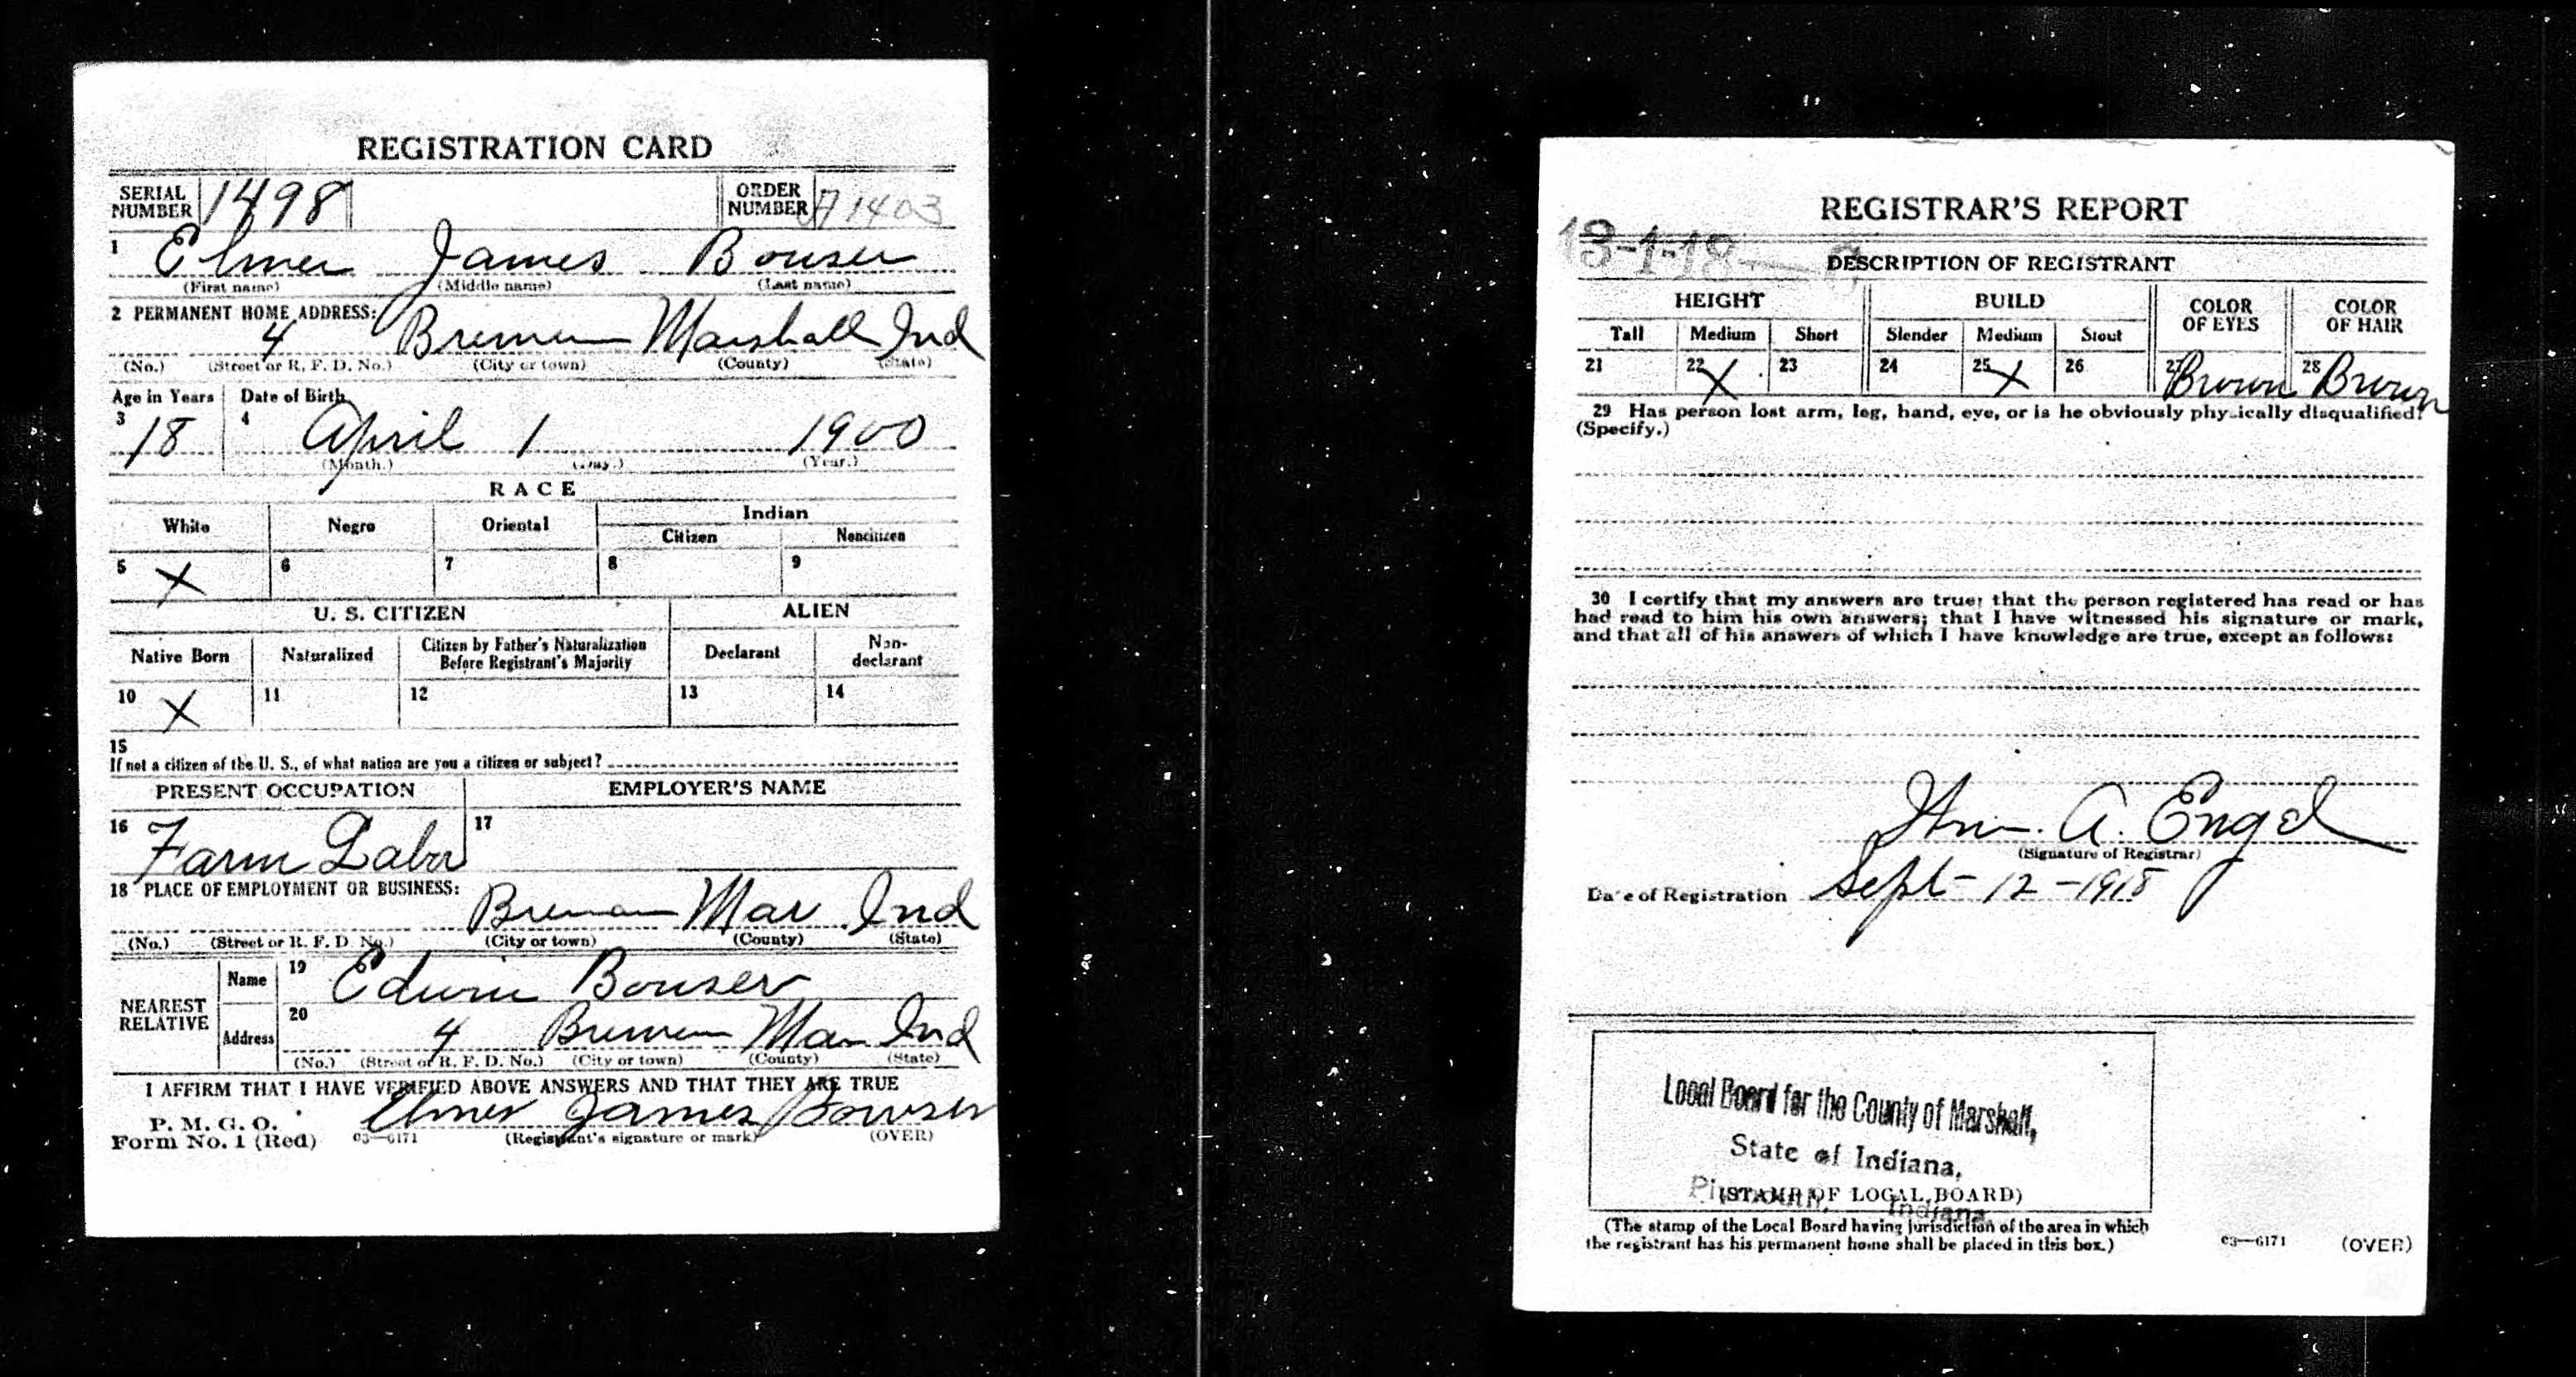 REGISTRATION CARD
SERIAL NUMBER 1498 ORDER NUMBER A 1403
1 Elmer James Bouser
(First name) (Middle name) (Last name)
2 PERMANENT HOME ADDRESS:
4 Bremen Marshall Ind
(No.) (Street or R. F. D. No.) (City or town) (County) (State)
Age in Years Date of Birth
3 18 4 April 1 1900
(Month.) (Day.) (Year.)
RACE
White Negro Oriental Indian
Citizen Noncitizen
5 X 6 7 8 9
U. S. CITIZEN ALIEN
Native Born Naturalized Citizen by Father's Naturalization Before Registrant's Majority Declarant Non-declarant
10 X 11 12 13 14
15
If not a citizen of the U. S., of what nation are you a citizen or subject?
PRESENT OCCUPATION EMPLOYER'S NAME
16 Farm Labor 17
18 PLACE OF EMPLOYMENT OR BUSINESS:
Bremen Mar Ind
(No.) (Street or R. F. D. No.) (City or town) (County) (State)
NEAREST RELATIVE
Name 19 Edwin Bouser
Address 20 4 Bremen Mar Ind
(No.) (Street or R. F. D. No.) (City or town) (County) (State)
I AFFIRM THAT I HAVE VERIFIED ABOVE ANSWERS AND THAT THEY ARE TRUE
P. M. G. O.
Form No. 1 (Red) 03—6171 Elmer James Bowser
(Registrant's signature or mark) (OVER)
REGISTRAR'S REPORT
13-1-18
DESCRIPTION OF REGISTRANT
HEIGHT BUILD COLOR OF EYES COLOR OF HAIR
Tall Medium Short Slender Medium Stout
21 22 X 23 24 25 X 26 27 Brown 28 Brown
29 Has person lost arm, leg, hand, eye, or is he obviously physically disqualified?
(Specify.)
30 I certify that my answers are true; that the person registered has read or has
had read to him his own answers; that I have witnessed his signature or mark,
and that all of his answers of which I have knowledge are true, except as follows:
Wm. A. Engel
(Signature of Registrar)
Date of Registration Sept - 12 - 1918
Local Board for the County of Marshall,
State of Indiana,
Plymouth, Indiana
(STAMP OF LOCAL BOARD)
(The stamp of the Local Board having jurisdiction of the area in which
the registrant has his permanent home shall be placed in this box.)
03—6171 (OVER)